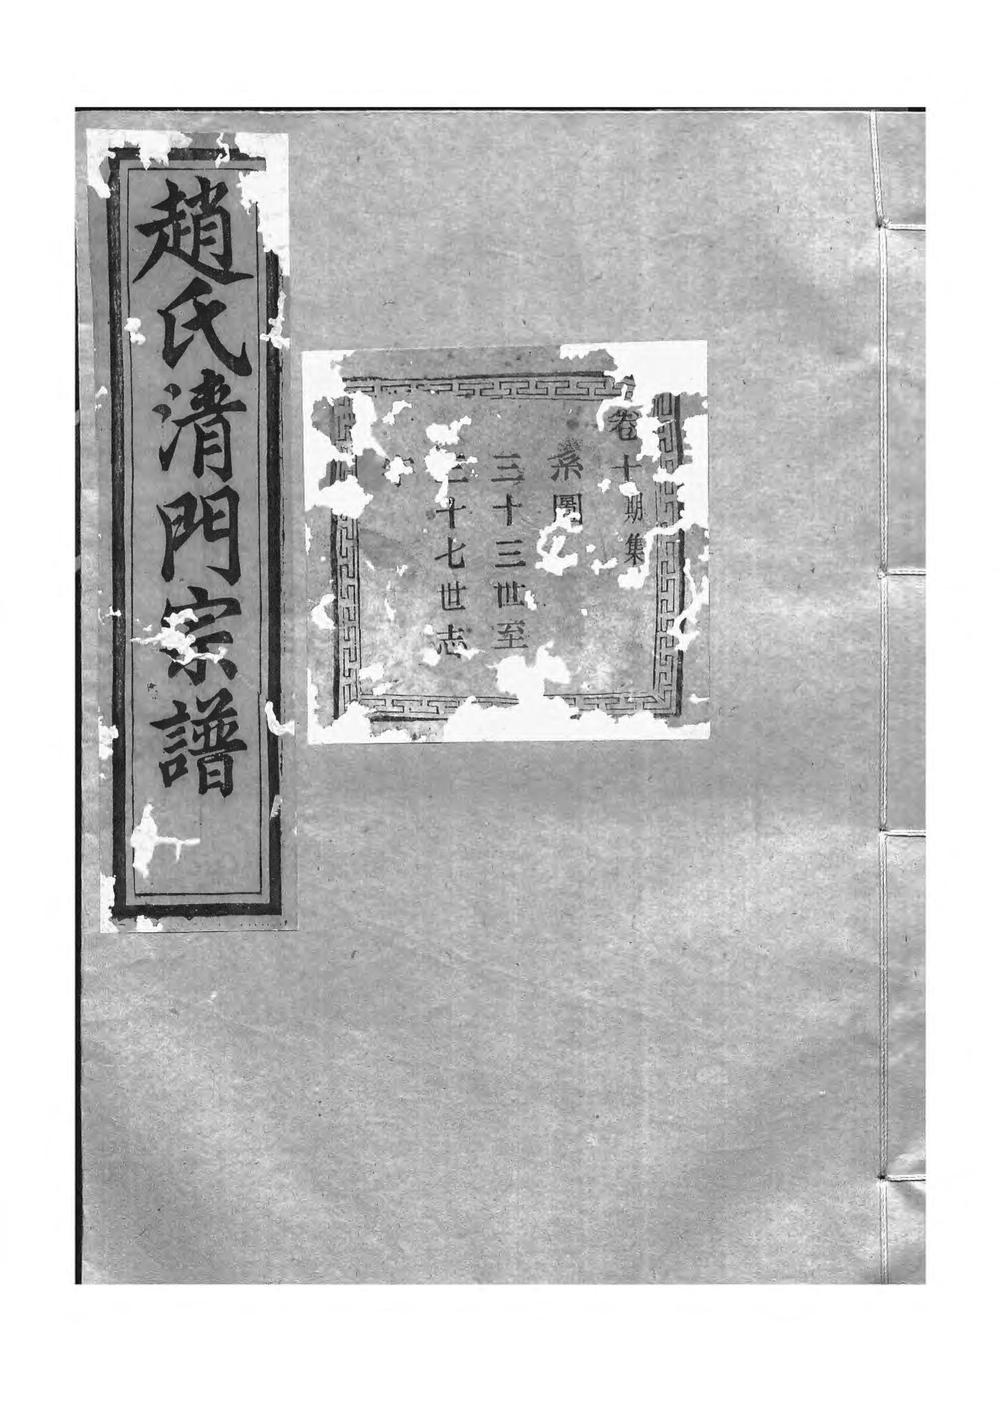 趙氏清門宗譜
卷十期集
系圖
三十三世至
三十七世志